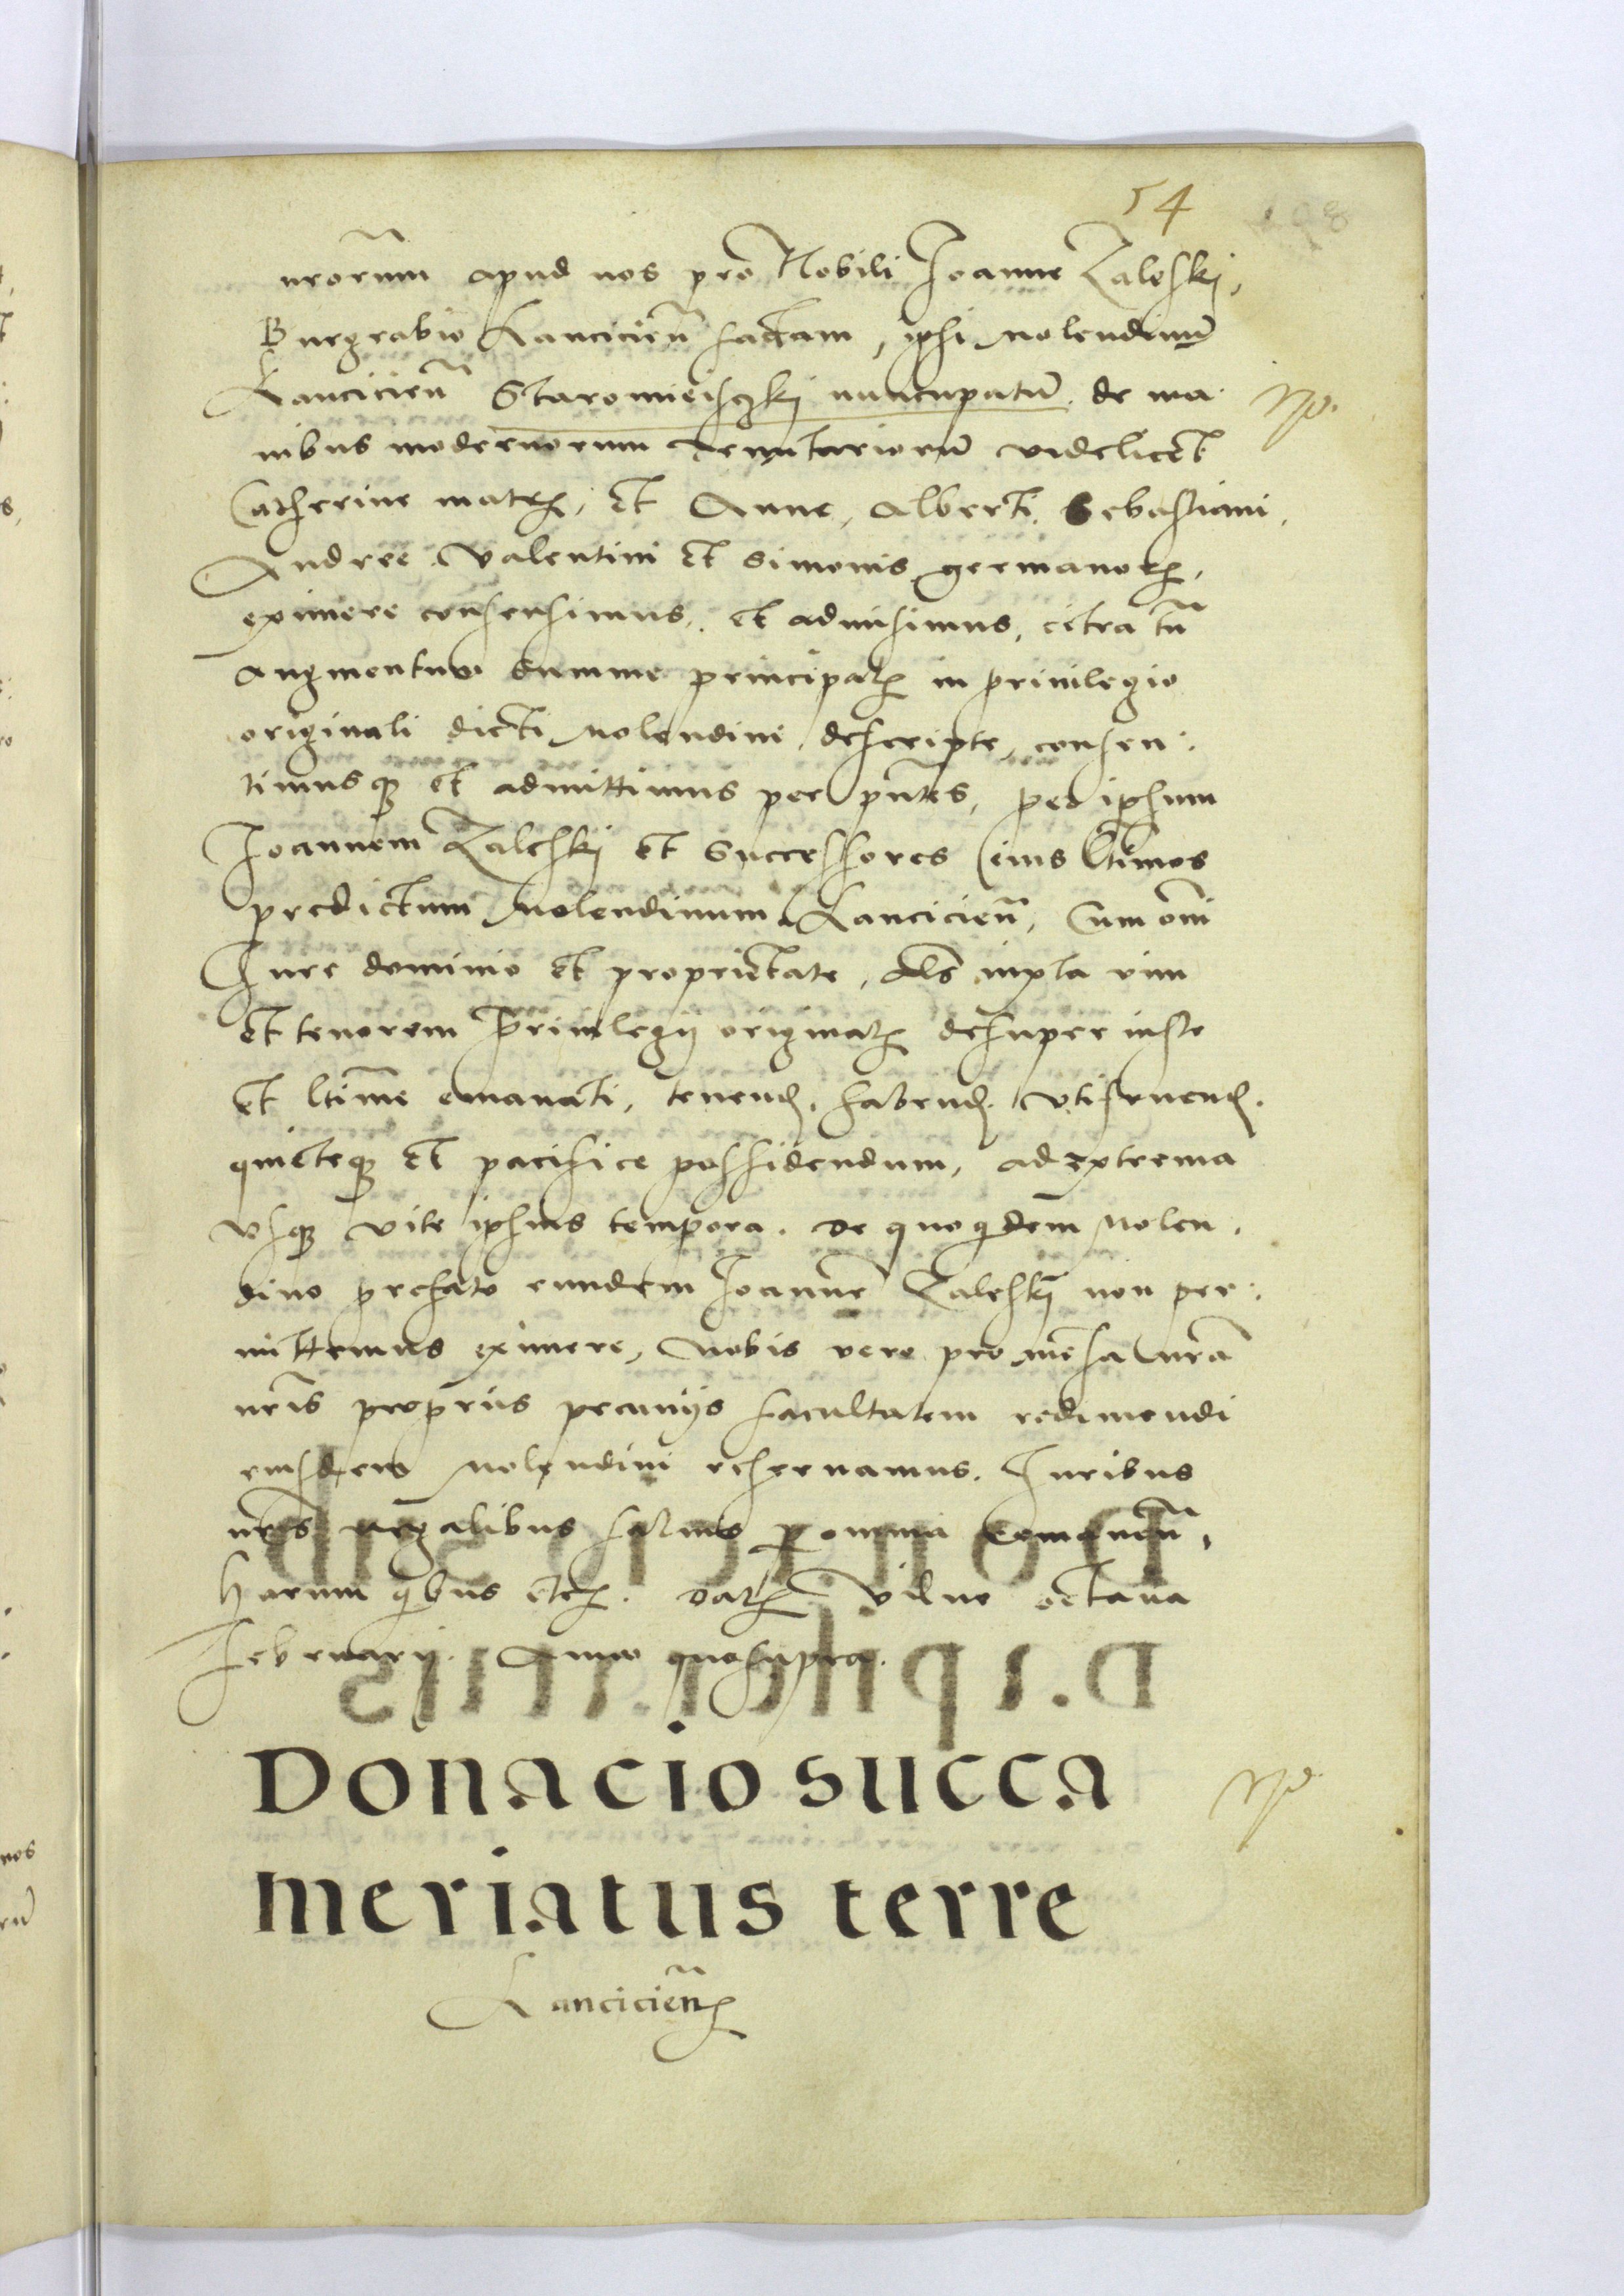 54
nrorum apud nos pro Nobili Joanne Zaleskj,
Burgrabio Lancicien̄ factam, ipsi molendinū
Lancicien̄ Staromieisczkj nuncupatū. de ma-
nibus modernorum tenutariorū videlicet
Catherine matris, et Anne, Alberti, Sebastiani,
Andree Valentini et Simonis germanorꝝ,
eximere consensimus, et admisimus, citra tn̄
augmentum summe principalis in privilegio
originali dicti molendini descripte, consen-
timusqꝫ et admittimus per pn̄tes, per ipsum
Joannem Zaleskj et Successores eius ltīmos
predictum Molendinum Lancicien̄, Cum om̄i
Jure dominio et proprietate, Als̄ iuxta vim
et tenorem Privilegij originalis desuper iuste
et ltīme emanati, tenend. habend. utifruend.
quieteqꝫ et pacifice possidendum, ad extrema
usqꝫ vite ipsius tempora. De quoquidem Molen-
dino prefato eundem Joannē Zaleskj non per-
mittemus eximere, Nobis vero pro mēsa nrā
nrīs proprijs pecunijs facultatem redimendi
eiusdem molendini reservamus. Juribus
nrīs regalibus salvis per omnia remanen̄,
Harum quibus etc. Dat. Vilne octava
Februarij. Anno quo supra.
Donacio succa
meriatus terre
Lancicien̄